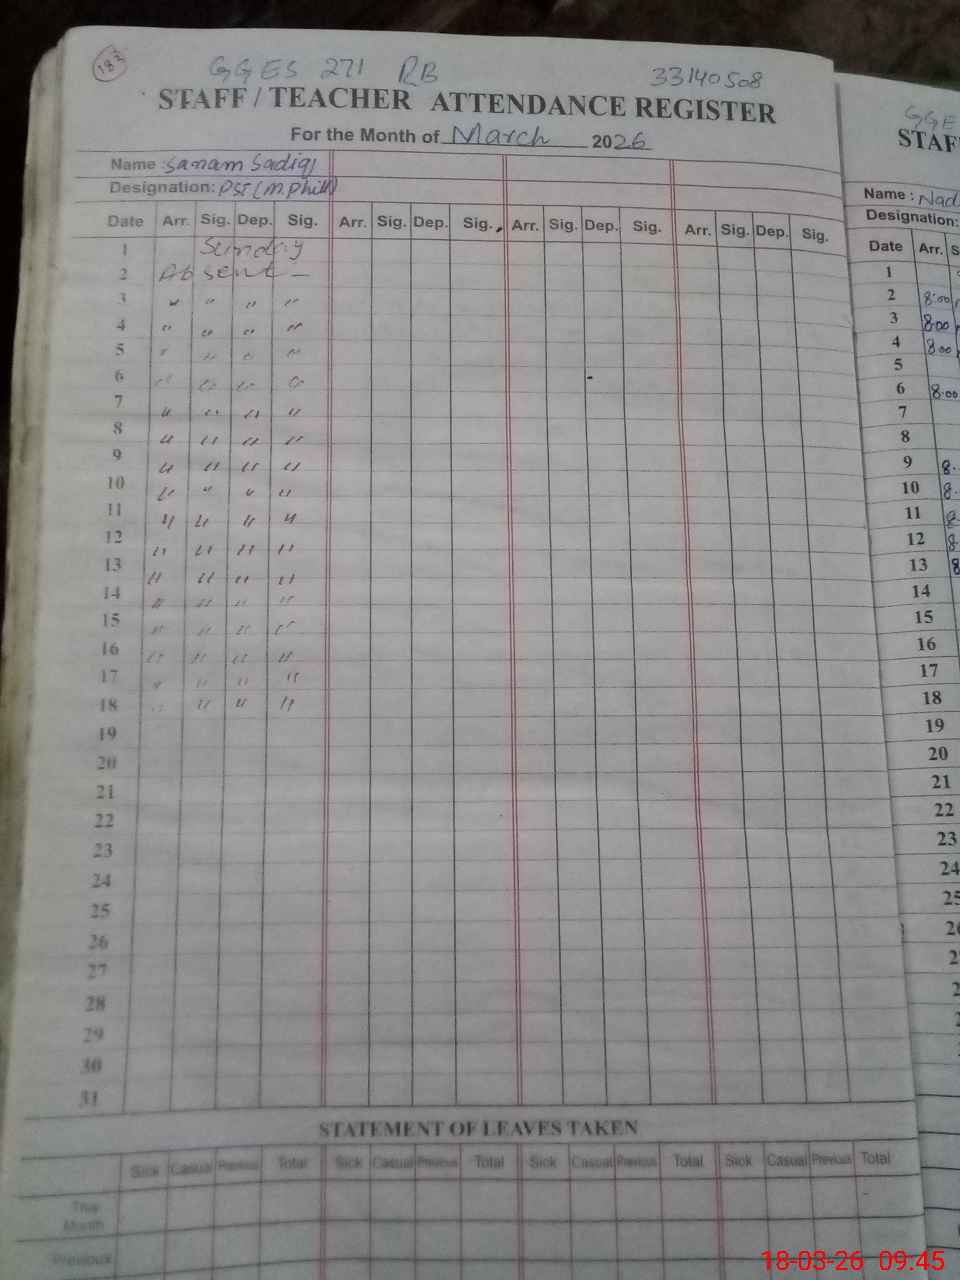 183
GGES 271 RB 33140508
STAFF / TEACHER ATTENDANCE REGISTER
For the Month of March 2026
Name : Sanam Sadiq
Designation: PST (M.Phill)
Date Arr. Sig. Dep. Sig. Arr. Sig. Dep. Sig. Arr. Sig. Dep. Sig. Arr. Sig. Dep. Sig.
1 Sunday
2 Absent –
3 " " " "
4 " " " "
5 " " " "
6 " " " "
7 " " " "
8 " " " "
9 " " " "
10 " " " "
11 " " " "
12 " " " "
13 " " " "
14 " " " "
15 " " " "
16 " " " "
17 " " " "
18 " " " "
19
20
21
22
23
24
25
26
27
28
29
30
31
STATEMENT OF LEAVES TAKEN
Sick Casual Previous Total Sick Casual Previous Total Sick Casual Previous Total Sick Casual Previous Total
This Month
Previous
GGE
STAF
Name : Nad
Designation:
Date Arr. S
1
2 8:00
3 8:00
4 8:00
5
6 8:00
7
8
9 8.
10 8.
11 8
12 8
13 8
14
15
16
17
18
19
20
21
22
23
24
25
26
2
2
18-03-26 09:45